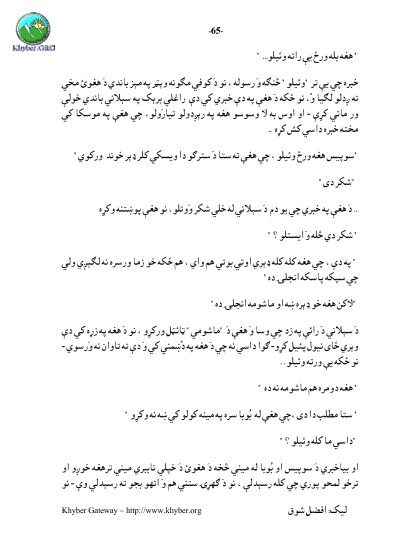 -65-
Khyber.ORG
"هغه بله ورځ يې راته وئيلو... "
خبره چي يې تر "وئيلو" څنګه وَ رسوله ، نو دَ کوفي مګونه وېټر په مېز باندي دَ هغوئ مخي
ته ږدلو لګيا وُ، نو ځکه دَ هغې په دې خبري کي دې راغلي بريک په سبلاني باندي خولې
ور ماتي کړې - او اوس به لا وسوسو هغه په رېږدولو تيارَولو ، چي هغې په موسکا کي
مخته خبره داسي کش کړه ..
"سوپيس هغه ورځ وئيلو ، چي هغې ته ستا دَ سترګو دا ويسکي کلر ډېر خوند ورکوي"
"شکر دی"
..دَ هغې په خبري چي يو دم دَ سبلاني له خلې شکر وَوتلو ، نو هغې پوښتنه وکړه
"شکر دي څله وَ ايستلو ؟ "
" په دې ، چي هغه کله کله ډېري اوټي بوټي هم واي ، هم ځکه خو زما ورسره نه لګېږي ولي
چي سپکه پاسکه انجلۍ ده"
"لاکن هغه خو ډېره ښه او ماشومه انجلۍ ده"
دَ سبلاني دَ رائې په زد چي وسا وَ هغې دَ "ماشومې" ټائټل ورکړو ، نو دَ هغه په زړه کي دې
وېري ځای نيول پئيل کړو- ګوا داسي نه چي دَ هغه په دُښمنۍ کي وَ دې ته تاوان نه وَرسوي-
نو ځکه يې ورته وئيلو ..
"هغه دومره هم ماشومه نه ده"
"ستا مطلب دا دی ،چي هغې له بُوبا سره په مينه کولو کي ښه نه وکړو "
"داسي ما کله وئيلو ؟ "
او بياخبري دَ سوپيس او بُوبا له ميني څخه دَ هغوئ دَ خپلي تابيري ميني ترهغه خوږو او
ترخو لمحو پوري چي کله رسېدلې ، نو دَ ګهړۍ ستني هم وَ اتهو بجو ته رسېدلې وې - نو
Khyber Gateway – http://www.khyber.org
ليک: افضل شوق